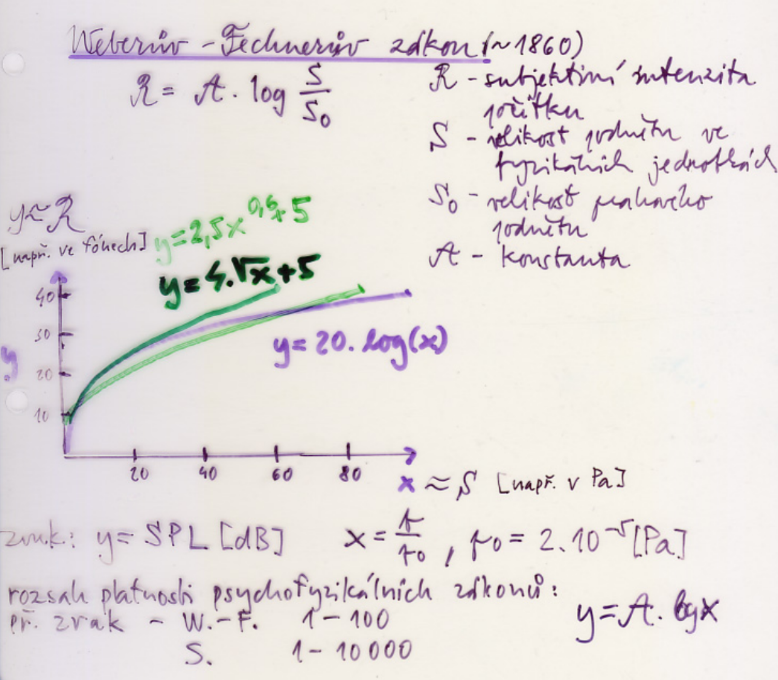 Weberův – Fechnerův zákon (~1860)
R = A . log S/S₀
R – subjektivní intenzita
počitku
S – velikost podnětu ve
fyzikálních jednotkách
S₀ – velikost prahového
podnětu
A – konstanta
y ≈ R
[např. ve fónech]
y=2,5x^0,6+5
y=4.√x+5
y=20.log(x)
y
40
30
20
10
20 40 60 80
x ≈ S [např. v Pa]
zvuk: y = SPL [dB] x = p/p₀ , p₀ = 2.10⁻⁵ [Pa]
rozsah platnosti psychofyzikálních zákonů:
př. zrak – W.-F. 1–100
y=A.log x
S. 1–10 000